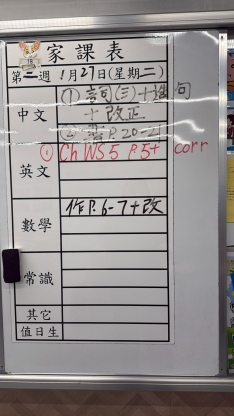 家課表
第二週 1月27日(星期二)
中文
① 言司(三)+造句
+改正
② P.20-21
英文
① Ch WS 5 P.5+ corr
數學
作P.6-7+改
常識
其它
值日生